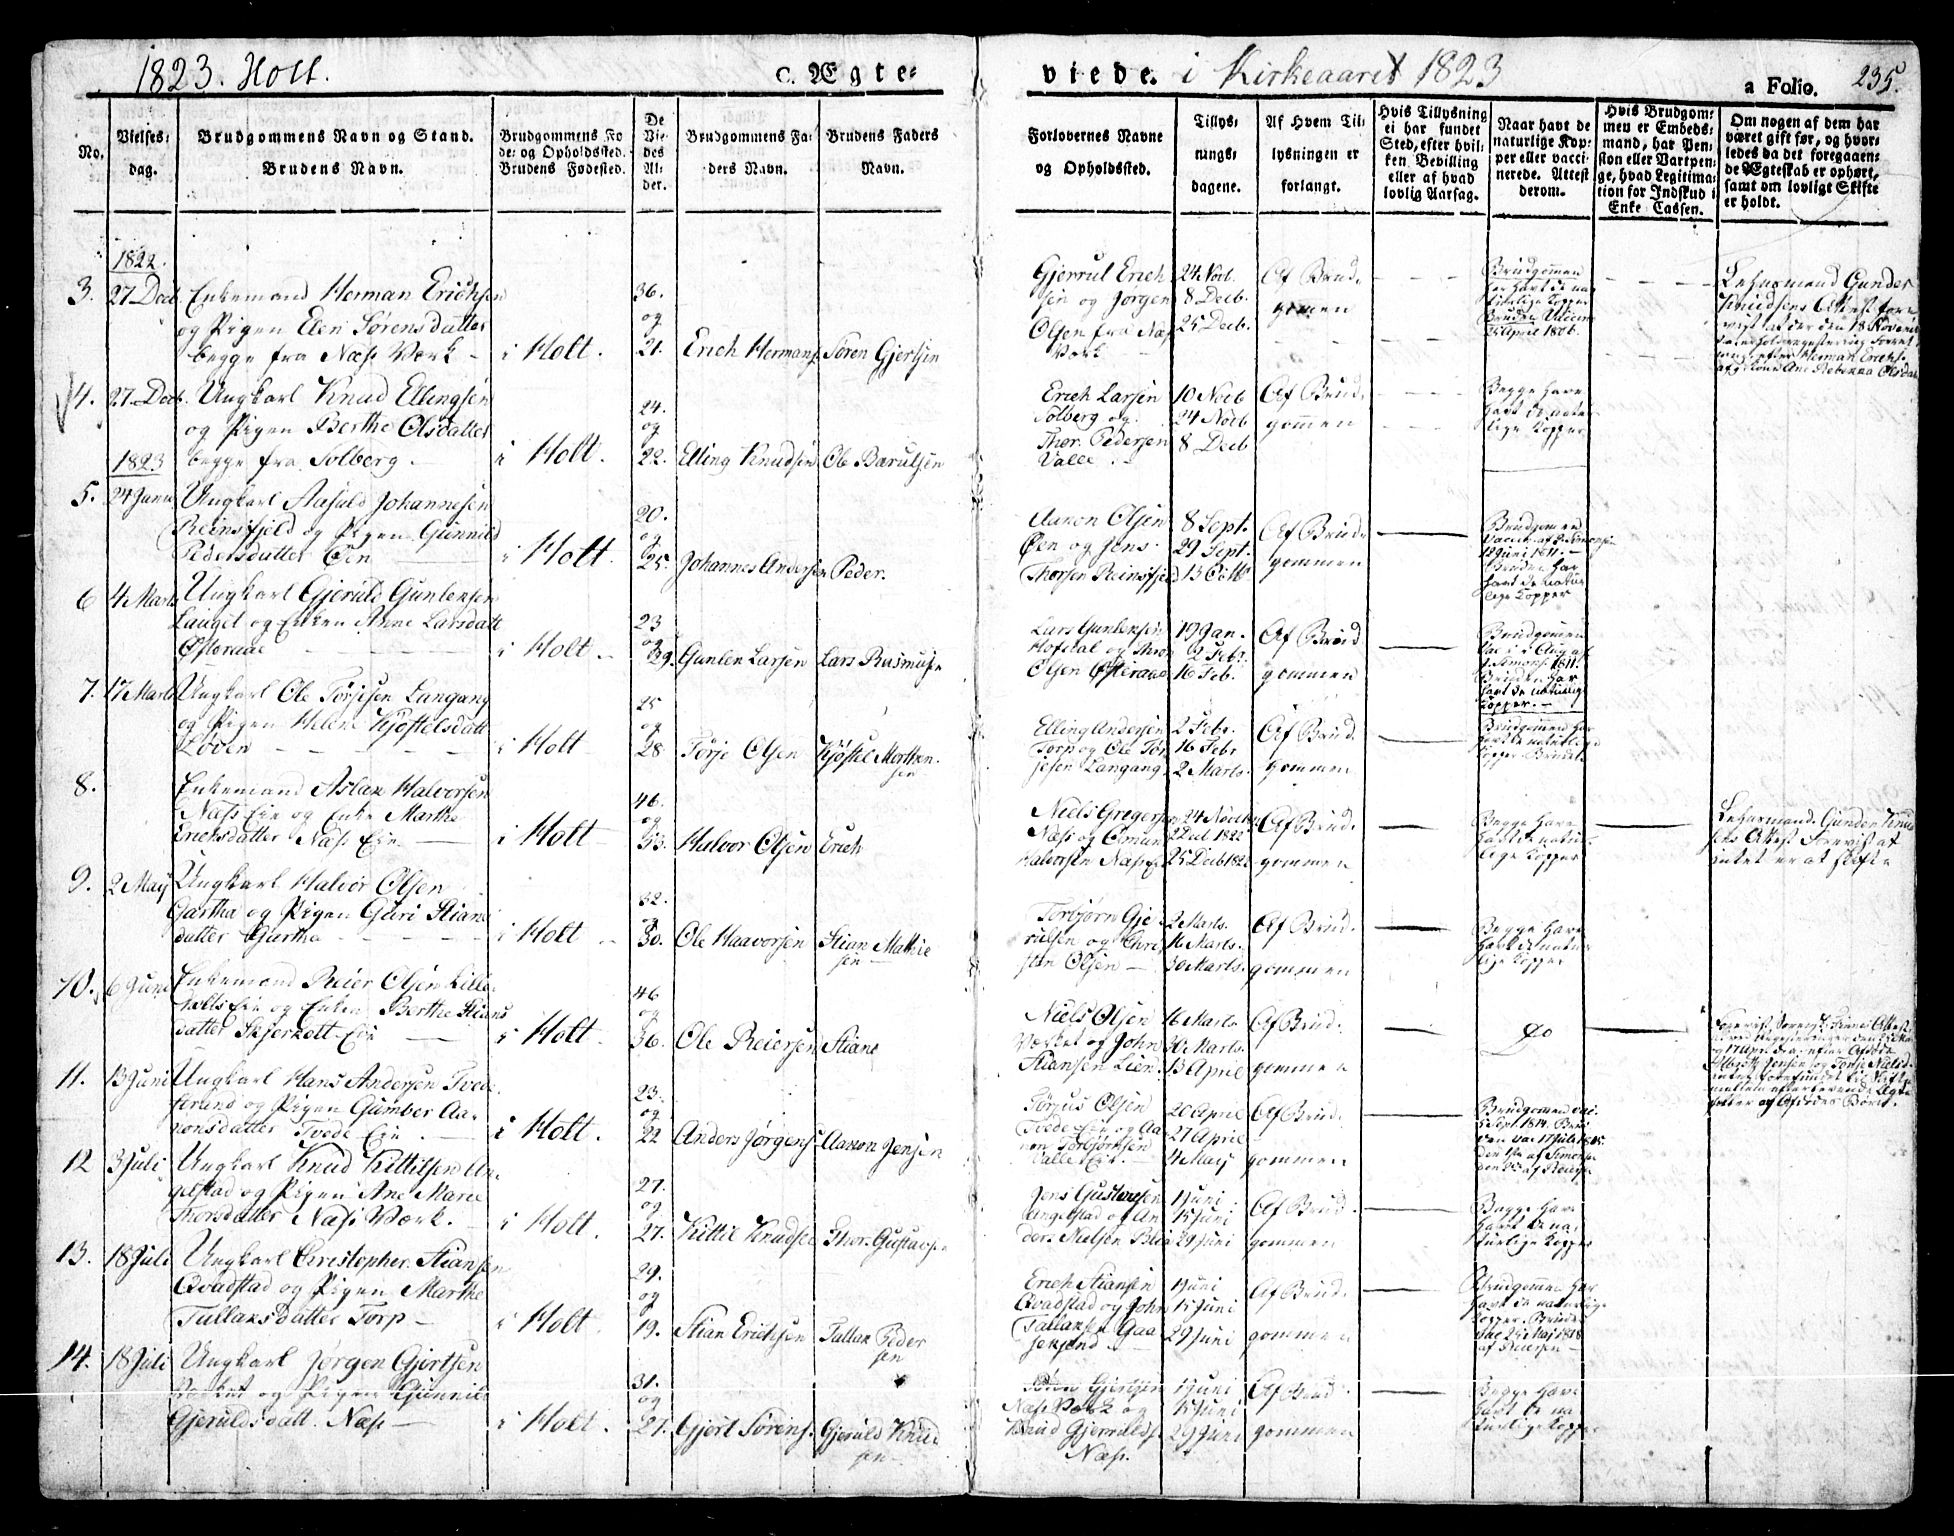 1823. Holt.
C. Ægte-
viede. i Kirkeaaret 1823
a Folio. 235.
No.
Vielses-
dag.
Brudgommens Navn og Stand.
Brudens Navn.
Brudgommens Fø-
de- og Opholdssted.
Brudens Fødested.
De
Vie-
des
Al-
der.
Brudgommens Fa-
ders Navn.
Brudens Faders
Navn.
Forlovernes Navne
og Opholdssted.
Tillys-
nings-
dagene.
Af Hvem Til-
lysningen er
forlangt.
Hvis Tillysning
ei har fundet
Sted, efter hvil-
ken Bevilling
eller af hvad
lovlig Aarsag.
Naar havt de
naturlige Kop-
per eller vacci-
nerede. Attest
derom.
Hvis Brudgom-
men er Embeds-
mand, har Pen-
sion eller Vartpen-
ge, hvad Legitima-
tion for Indskud i
Enke Cassen.
Om nogen af dem har
været gift før, og hvor-
ledes da det foregaaen-
de Ægteskab er ophørt,
samt om lovligt Skifte
er holdt.
1822.
3. 27 Decb. Enkemand Herman Erichsen
og Pigen Elen Sørensdatter
begge fra Næs Værk
i Holt.
36.
og
21.
Erich Hermans. Søren Gjertsen
Gjerrul Erich
sen og Jørgen
Olsen fra Næs
Værk
24 Novb.
8 Decb.
25 Decb.
Af Brud-
gommen
Brudgomen
har havt de na
turlige Kopper
Bruden Vaccin
April 1806.
Lehnsmand Gunder
Knudsens Attest fore
4. 27 Decb. Ungkarl Knud Ellingsen
og Pigen Berthe Olsdatter
begge fra Solberg
i Holt.
24.
og
22.
Elling Knudsen Ole Barulsen
Erich Larsen
Solberg og
Thor Pedersen
Valle
10 Novb
24 Novb
8 Decb
Af Brud-
gommen
Begge have
havt de natur
lige Kopper
1823
5. 24 Janu Ungkarl Aasuld Johannesen
Reinsfjeld og Pigen Gunnild
Pedersdatter Øen
i Holt.
20.
og
25.
Johannes Andersen Peder.
Aaron Olsen
Øen og Jens
Thorsen Reinsfjeld
8 Sept.
29 Sept.
13 Octb
Af Brud-
gommen
Brudgomen
12 Juni 1811.
Bruden har
havt de natur
lige Kopper
6 4 Marts Ungkarl Gjeruld Gunlensen
Lauget og Enken Anne Larsdatt
Østeraae
i Holt
23
og
39.
Gunlen Larsen Lars Rasmusen
Lars Gunlensen
Hofdal og Thor
Olsen Østeraae
19 Jan.
2 Febr.
16 Feb.
Af Brud
gommen
Brudgomen
Bruden har
havt de naturlig
Kopper.
7. 17 Marts Ungkarl Ole Tørjesen Langang
og Pigen Helene Kjøstelsdatt
Løven
i Holt
25
og
28
Tørje Olsen Kjøstel Morthen-
sen
Elling Andersen
Torp og Ole Tør
jesen Langang
2 Febr.
16 Febr
2 Marts.
Af Brud
gommen
Brudgomen har
havt de naturlige
8. Enkemand Aslak Halvorsen
Næs Eie og Enke Marthe
Erichsdatter Næs Eie
i Holt
46.
og
53.
Halvor Olsen Erich
Niels Gregersen
Næs og Omun
Halvorsen Næs
24 Novbr
2 Decb 1822
25 Decb 1822
Af Brud-
gommen
Begge have
havt de natur
lige Kopper
Lehnsmand Gunder Knud
sens Attest Forevist at
intet er at skifte
9. 2 Maij Ungkarl Halvor Olsen
Gartha og Pigen Guri Stians
datter Gartha
i Holt
32.
og
30.
Ole Haavorsen Stian Mathie
sen
Torbjørn Gje
rulsen og Chri
sten Olsen
2 Marts.
16 Marts.
30 Marts.
Af Brud-
gommen
Begge have
havt de natur
lige Kopper
10. 6 Juni Enkemand Reier Olsen Lille-
holts Eie og Enken Berthe Stians
datter Skjerkolt Eie
i Holt
46
og
36.
Ole Reiersen Stian
Niels Olsen
Værket og John
Stiansen Lien
16 Marts
30 Marts.
13 April
Af Brud-
gommen
Do
11. 13 Juni Ungkarl Hans Andersen Tvede-
strand og Pigen Gumber Aa-
ronsdatter Tvede Eie
i Holt.
23.
og
22
Anders Jørgens. Aaron Jensen
Tørjus Olsen
Tvede Eie og Aa
ron Torbjørnsen
Valle Eie.
20 April
27 April
4 Maij
Af Brud-
gommen
Brudgomen vac.
5 Sept. 1814. Bru
den vac 17 Juli 1815
12 3 Juli Ungkarl Knud Kittilsen An-
gelstad og Pigen Ane Marie
Thorsdatter Næs Værk.
i Holt.
27.
og
27.
Kittil Knudsen Thor Gustavsen
Jens Gustavsen
Angelstad og An
ders Nielsen
1 Juni
15 Juni
29 Juni
Af Brud-
gommen
Begge have
havt de na-
turlige Kopper
13. 18 Juli Ungkarl Christopher Stiansen
Qvadstad og Pigen Marthe
Tallaksdatter Torp
i Holt.
29.
og
19.
Stian Erichsen Tallak Peder
sen
Erich Stiansen
Qvadstad og John
Tallaksen Gaa
seksund
1 Juni
15 Juni
29 Juni
Af Brud-
gommen
Brudgomen har
havt de naturlige
Kopper. Bruden
vac 24 Maj 1818
af Reiersen
14. 18 Juli Ungkarl Jørgen Gjertsen
Værket og Pigen Gunnil
Gjeruldsdatt. Næs
i Holt.
31.
og
27.
Gjert Sørens. Gjeruld Knud
sen
Søren Gjertsen
Næs Værk og
Knud Gjerulds.
Næs.
1 Juni
15 Juni
29 Juni
Af Brud-
gommen
Begge have
havt de na
turlige Kopper